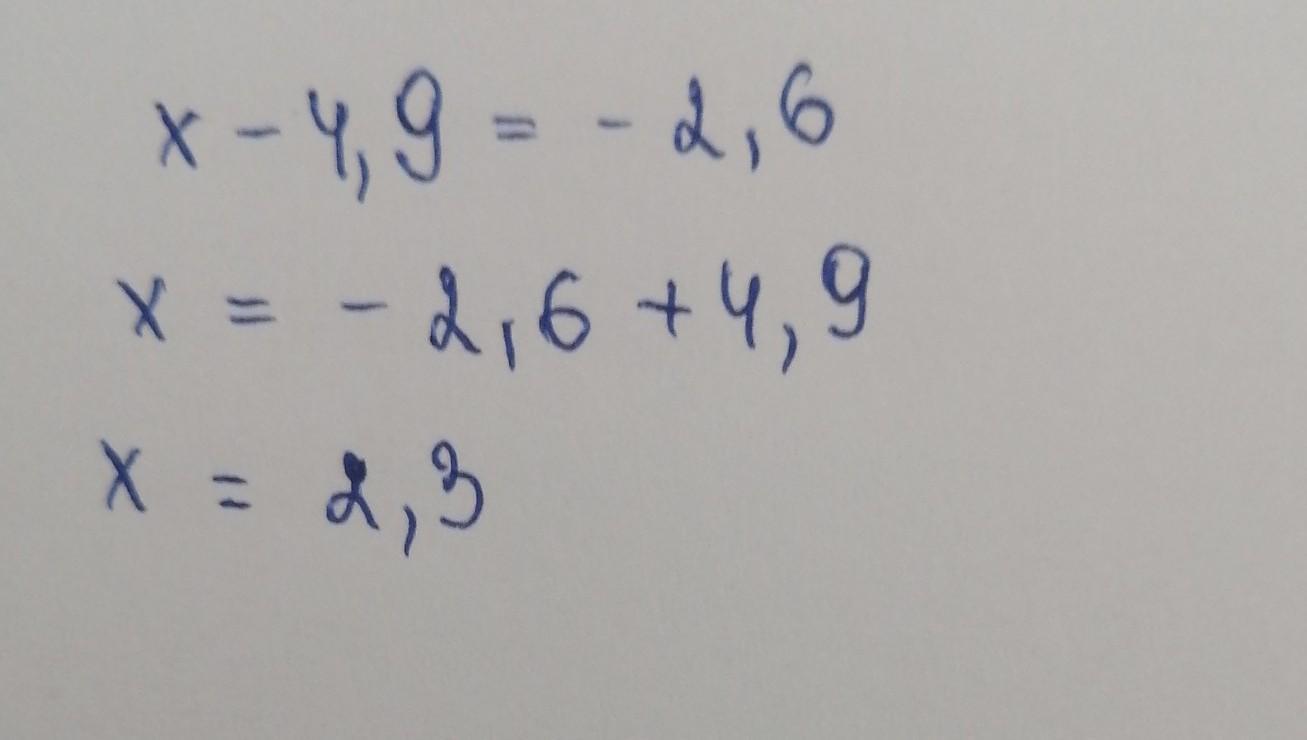 x - 4,9 = - 2,6
x = - 2,6 + 4,9
x = 2,3